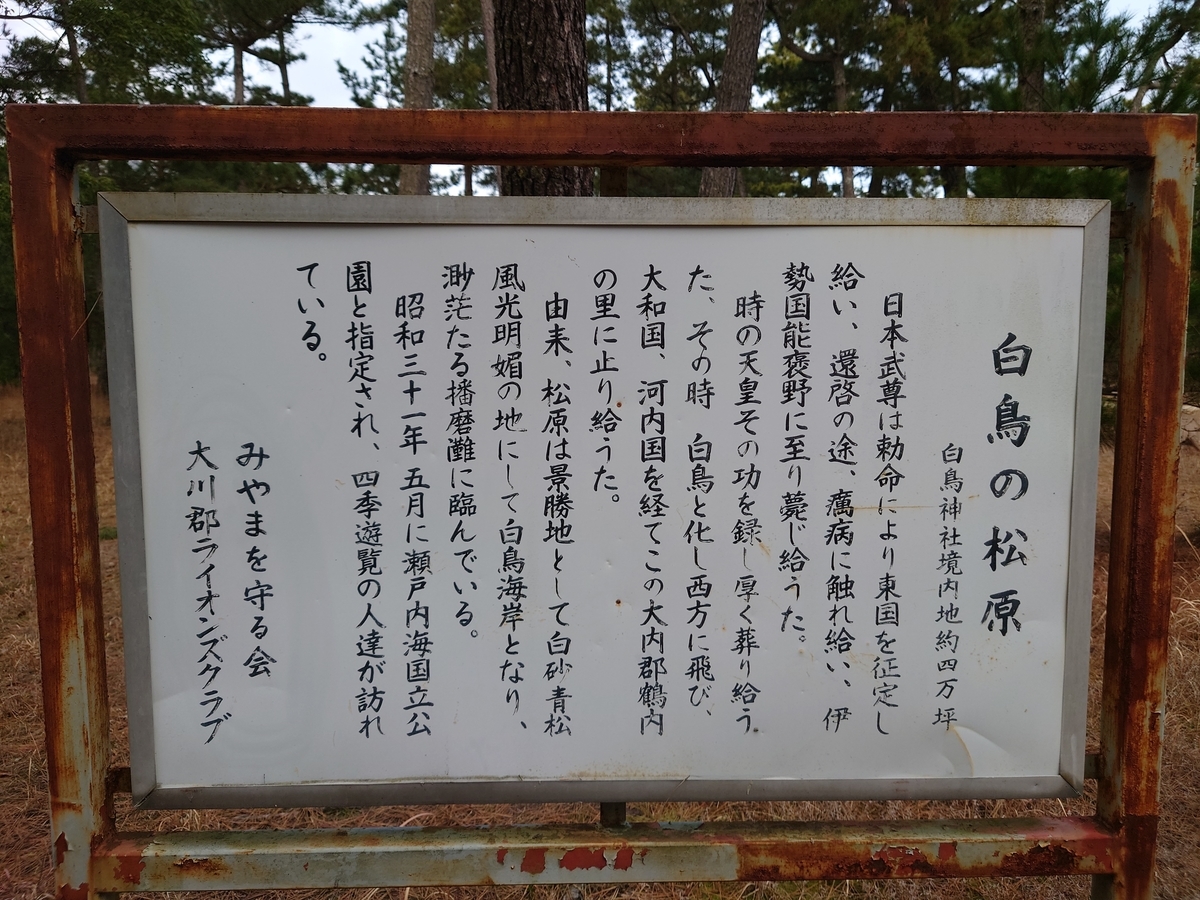 白鳥の松原
白鳥神社境内地約四万坪
日本武尊は勅命により東国を征定し
給い、還啓の途、癘病に触れ給い、伊
勢国能褒野に至り薨じ給うた。
時の天皇その功を録し厚く葬り給う
た、その時　白鳥と化し西方に飛び、
大和国、河内国を経てこの大内郡鶴内
の里に止り給うた。
由来、松原は景勝地として白砂青松
風光明媚の地にして白鳥海岸となり、
渺茫たる播磨灘に臨んでいる。
昭和三十一年五月に瀬戸内海国立公
園と指定され、四季遊覧の人達が訪れ
ている。
みやまを守る会
大川郡ライオンズクラブ